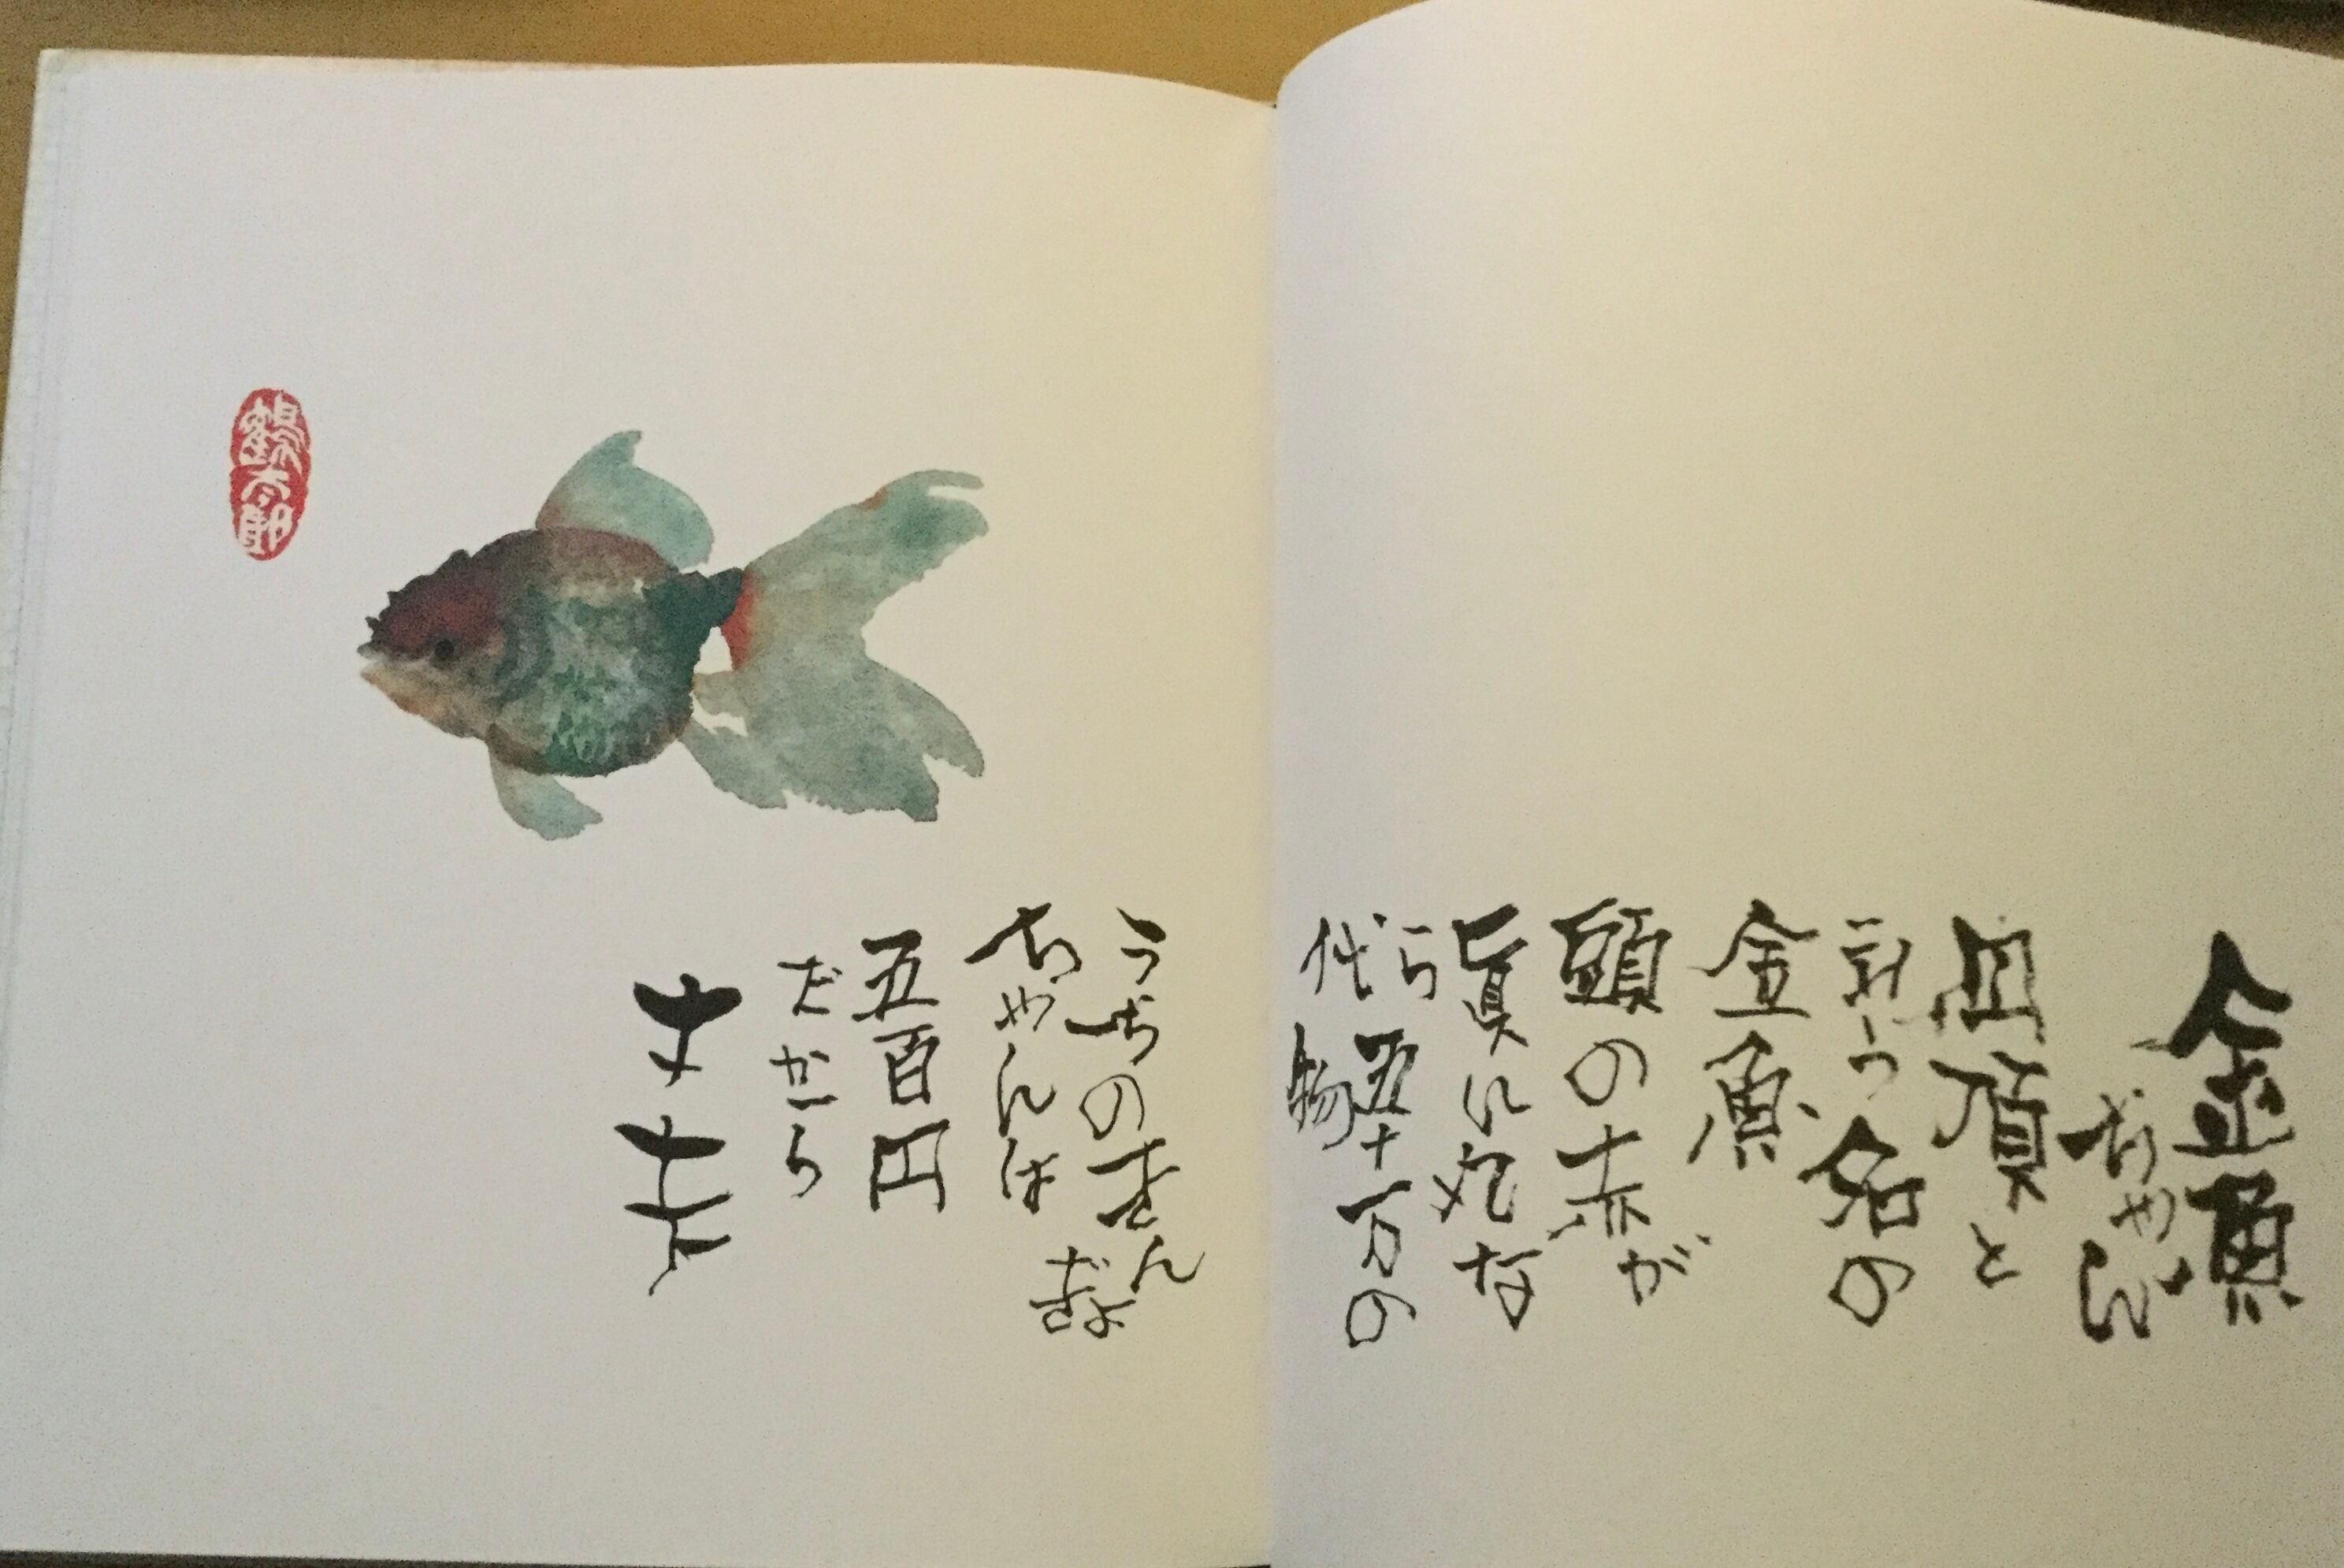 金魚
ちゃん
丹頂と
言う名の
金魚
頭の赤が
真ん丸な
ら五十万の
代物
うちのきん
ぎょ
ちゃんは
五百円
だから
丈夫
鶴太郎